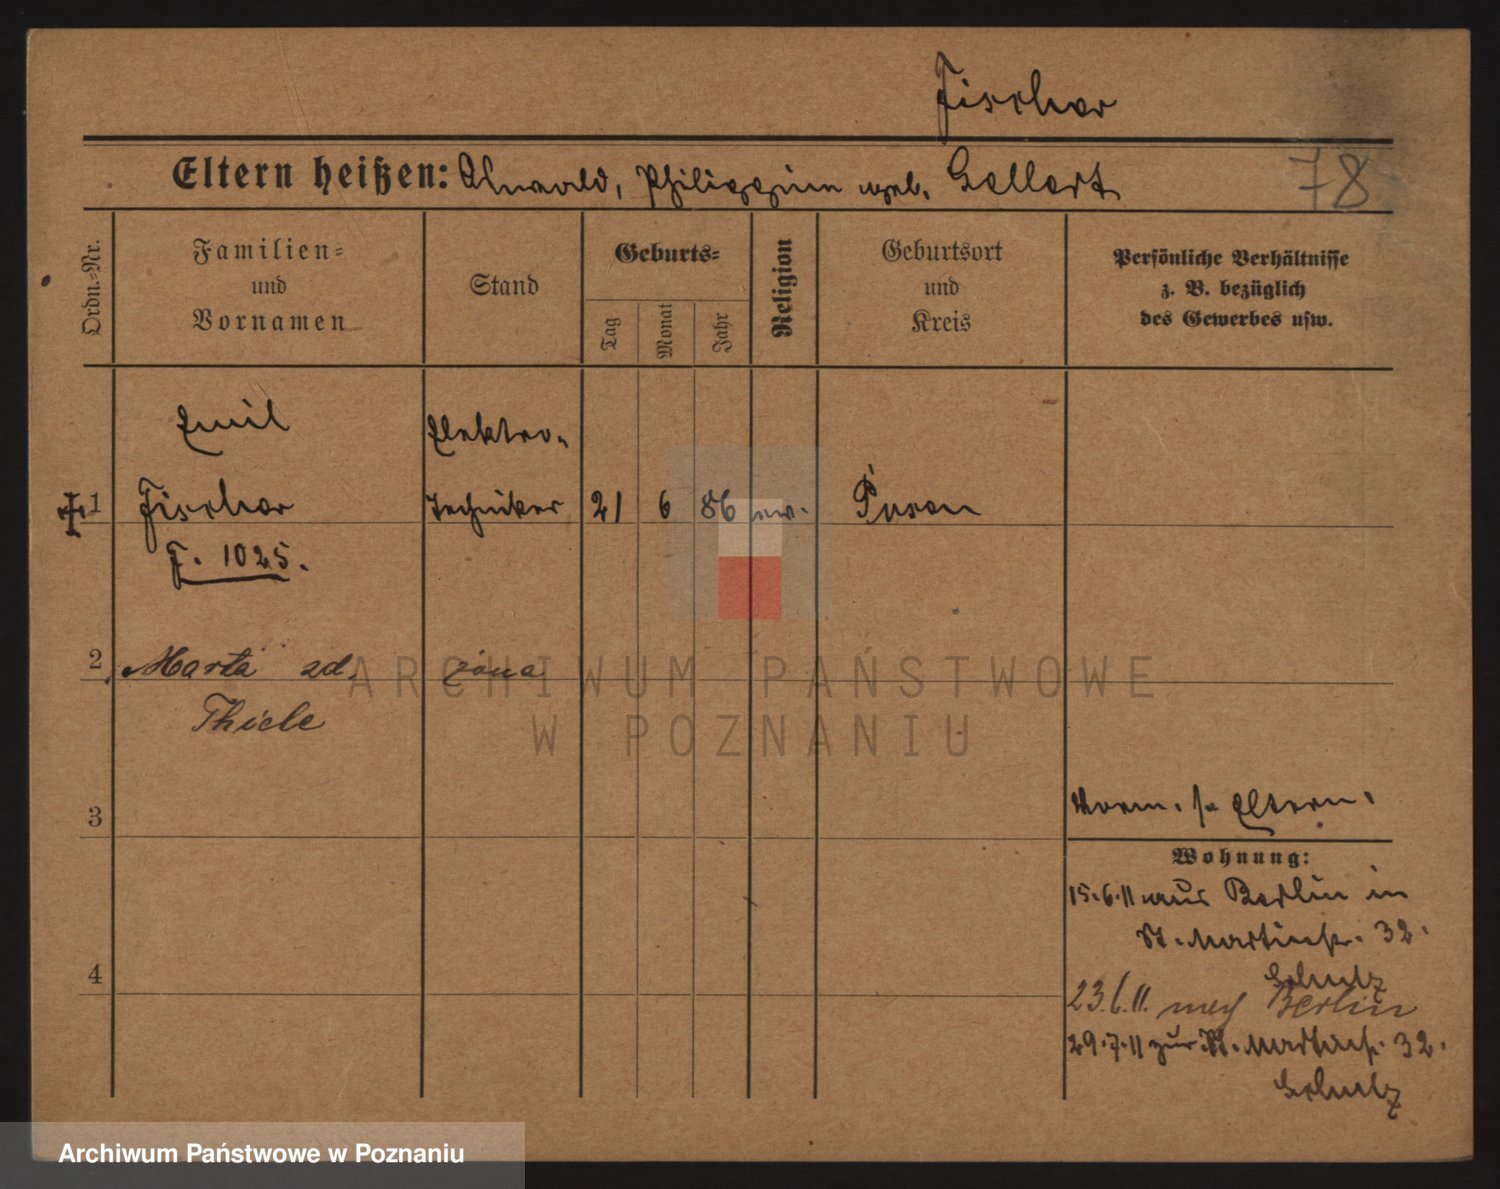 Fischer
78
Eltern heißen: Ewald, Philippine geb. Gellert
Ordn.-Nr.
Familien-
und
Vornamen
Stand
Geburts-
Tag
Monat
Jahr
Religion
Geburtsort
und
Kreis
Persönliche Verhältnisse
z. B. bezüglich
des Gewerbes usw.
Emil
Elektro-
1
Fischer
techniker
21
6
86
ev.
Posen
F. 1025.
2
Marta zd.
żona
Thiele
3
Vorm. s. Eltern.
Wohnung:
15.6.11 aus Berlin in
St. Martinstr. 32.
4
Schulz
23.6.11. nach Berlin
29.7.11 zur. St. Martinstr. 32.
Schulz
ARCHIWUM PAŃSTWOWE
W POZNANIU
Archiwum Państwowe w Poznaniu